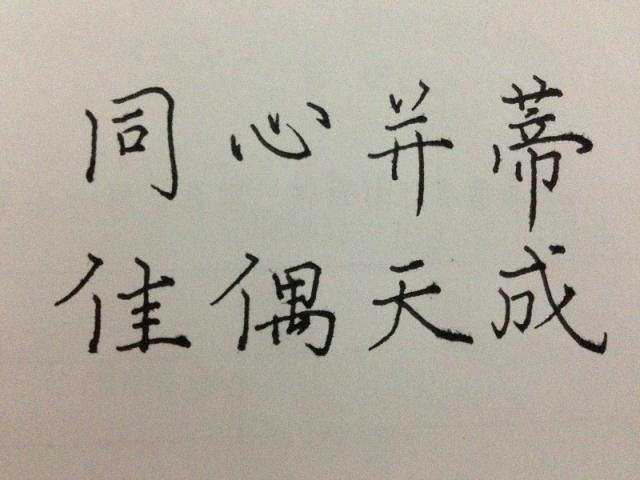 同心并蒂
佳偶天成